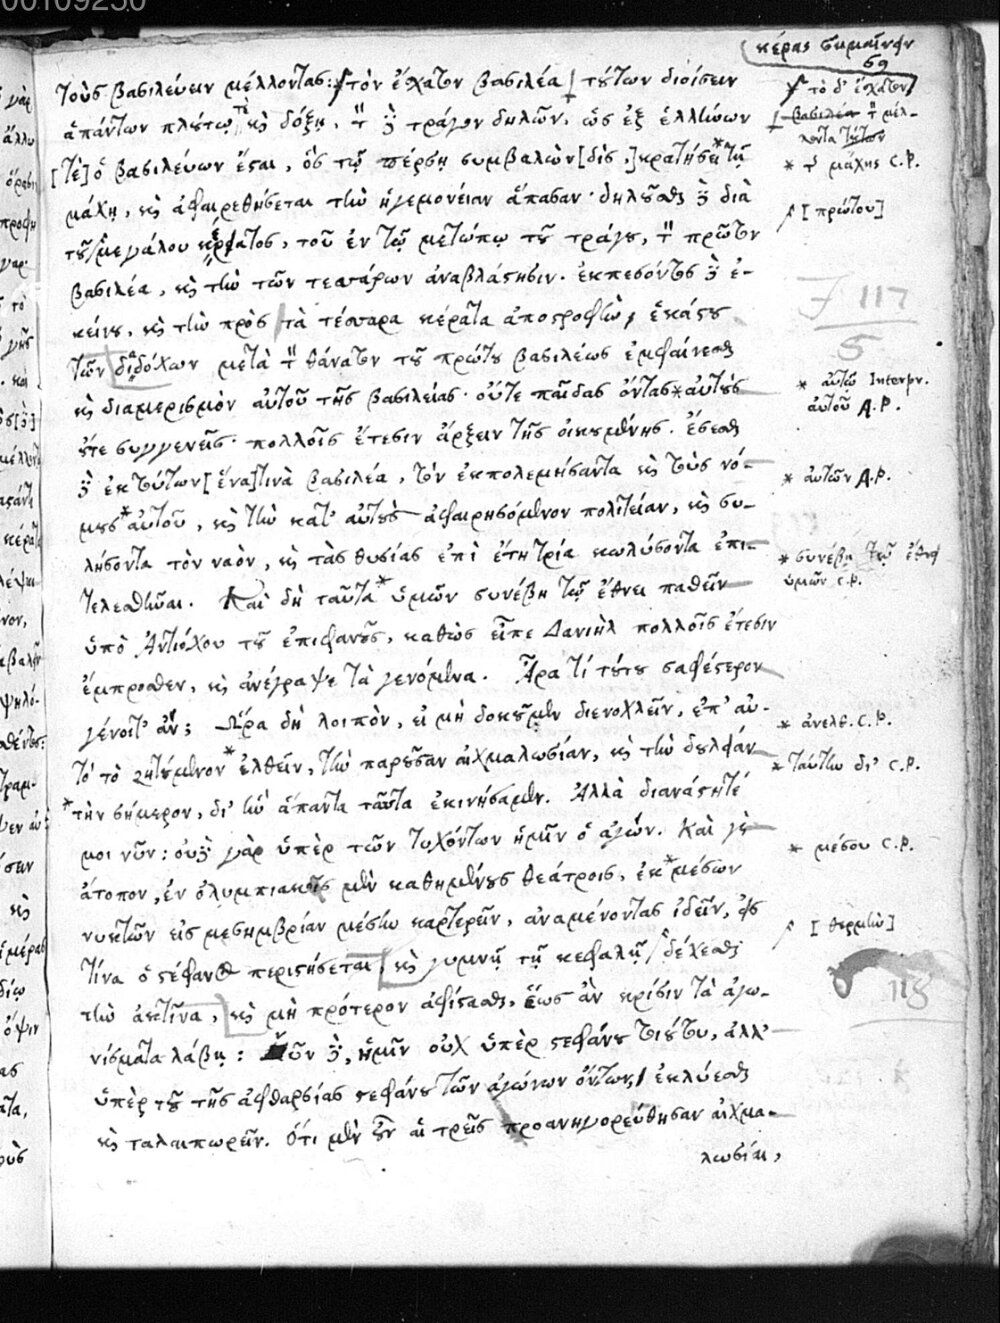 00109250
κέρας σημαῖνον
69
τοὺς βασιλεύειν μέλλοντας: τὸν ἔσχατον βασιλέα τούτων διοίσειν
ἁπάντων πλούτῳ τὲ καὶ δόξῃ, τὸν δὲ τράγον δηλῶν, ὡς ἐξ ἑλλήνων
[τὲ] ὁ βασιλεύων ἔσται, ὃς τῷ πέρσῃ συμβαλὼν [δὶς,] κρατήσει* τῇ
μάχῃ, καὶ ἀφαιρεθήσεται τὴν ἡγεμονείαν ἅπασαν· δηλοῦσθαι δὲ διὰ
τοῦ μεγάλου κέρατος, τοῦ ἐν τῷ μετώπῳ τοῦ τράγου, τὸν πρῶτον
βασιλέα, καὶ τὴν τῶν τεσσάρων ἀναβλάστησιν· ἐκπεσόντος δὲ ἐ-
κείνου, καὶ τὴν πρὸς τὰ τέσσαρα κέρατα ἀποστροφὴν ἑκάστου
τῶν διαδόχων μετὰ τὸν θάνατον τοῦ πρώτου βασιλέως ἐμφαίνεσθαι
καὶ διαμερισμὸν αὐτοῦ τῆς βασιλείας· οὔτε παῖδας ὄντας * αὐτοὺς
οὔτε συγγενεῖς· πολλοῖς ἔτεσιν ἄρξειν τῆς οἰκουμένης. ἔσεσθαι
δὲ ἐκ τούτων [ἕνα] τινὰ βασιλέα, τὸν ἐκπολεμήσαντα καὶ τοὺς νό-
μους * αὐτοῦ, καὶ τὴν κατ' αὐτοὺς ἀφαιρησόμενον πολιτείαν, καὶ συ-
λήσοντα τὸν ναὸν, καὶ τὰς θυσίας ἐπὶ ἔτη τρία κωλύσοντα ἐπι-
τελεσθῆναι. Καὶ δὴ ταῦτα * ὑμῶν συνέβη τῷ ἔθνει παθεῖν
ὑπὸ Ἀντιόχου τοῦ ἐπιφανοῦς, καθὼς εἶπε Δανιὴλ πολλοῖς ἔτεσιν
ἔμπροσθεν, καὶ ἀνέγραψε τὰ γενόμενα. Ἆρα τί τούτου σαφέστερον
γένοιτ' ἄν; Ὥρα δὴ λοιπὸν, εἰ μὴ δοκοῦμεν διενοχλεῖν, ἐπ' αὐ-
τὸ τὸ ζητούμενον * ἐλθεῖν, τὴν παροῦσαν αἰχμαλωσίαν, καὶ τὴν δουλείαν
* τὴν σήμερον, δι' ἣν ἅπαντα ταῦτα ἐκινήσαμεν. Ἀλλὰ διανάστητέ
μοι νῦν: οὐδὲ γὰρ ὑπὲρ τῶν τυχόντων ἡμῖν ὁ ἀγών. Καὶ γὰρ
ἄτοπον, ἐν ὀλυμπιακοῖς μὲν καθημένους θεάτροις, ἐκ * μέσων
νυκτῶν εἰς μεσημβρίαν μέσην καρτερεῖν, ἀναμένοντας ἰδεῖν, εἰς
τίνα ὁ στέφανος περιστήσεται, καὶ γυμνῇ τῇ κεφαλῇ δέχεσθαι
τὴν ἀκτῖνα, καὶ μὴ πρότερον ἀφίστασθαι, ἕως ἂν κρίσιν τὰ ἀγω-
νίσματα λάβῃ: νῦν δὲ, ἡμῖν οὐχ ὑπὲρ στεφάνου τοιούτου, ἀλλ'
ὑπὲρ τοῦ τῆς ἀφθαρσίας στεφάνου τῶν ἀγώνων ὄντων, ἐκλύεσθαι
καὶ ταλαιπωρεῖν. Ὅτι μὲν οὖν αἱ τρεῖς προανηγορεύθησαν αἰχμα-
λωσίαι,
τὸ δ' ἔσχατον
βασιλέα τὸν μέλ-
λοντα τούτων
* τ μάχης C.P.
[πρώτου]
117
5
* αὐτῷ Interpr.
αὐτοῦ A.P.
* αὐτῶν A.P.
* συνέβη τῷ ἔθνει
ὑμῶν C.P.
* ἀνελθ. C.P.
* ταύτην δι' C.P.
* μέσου C.P.
[θερμὴν]
118